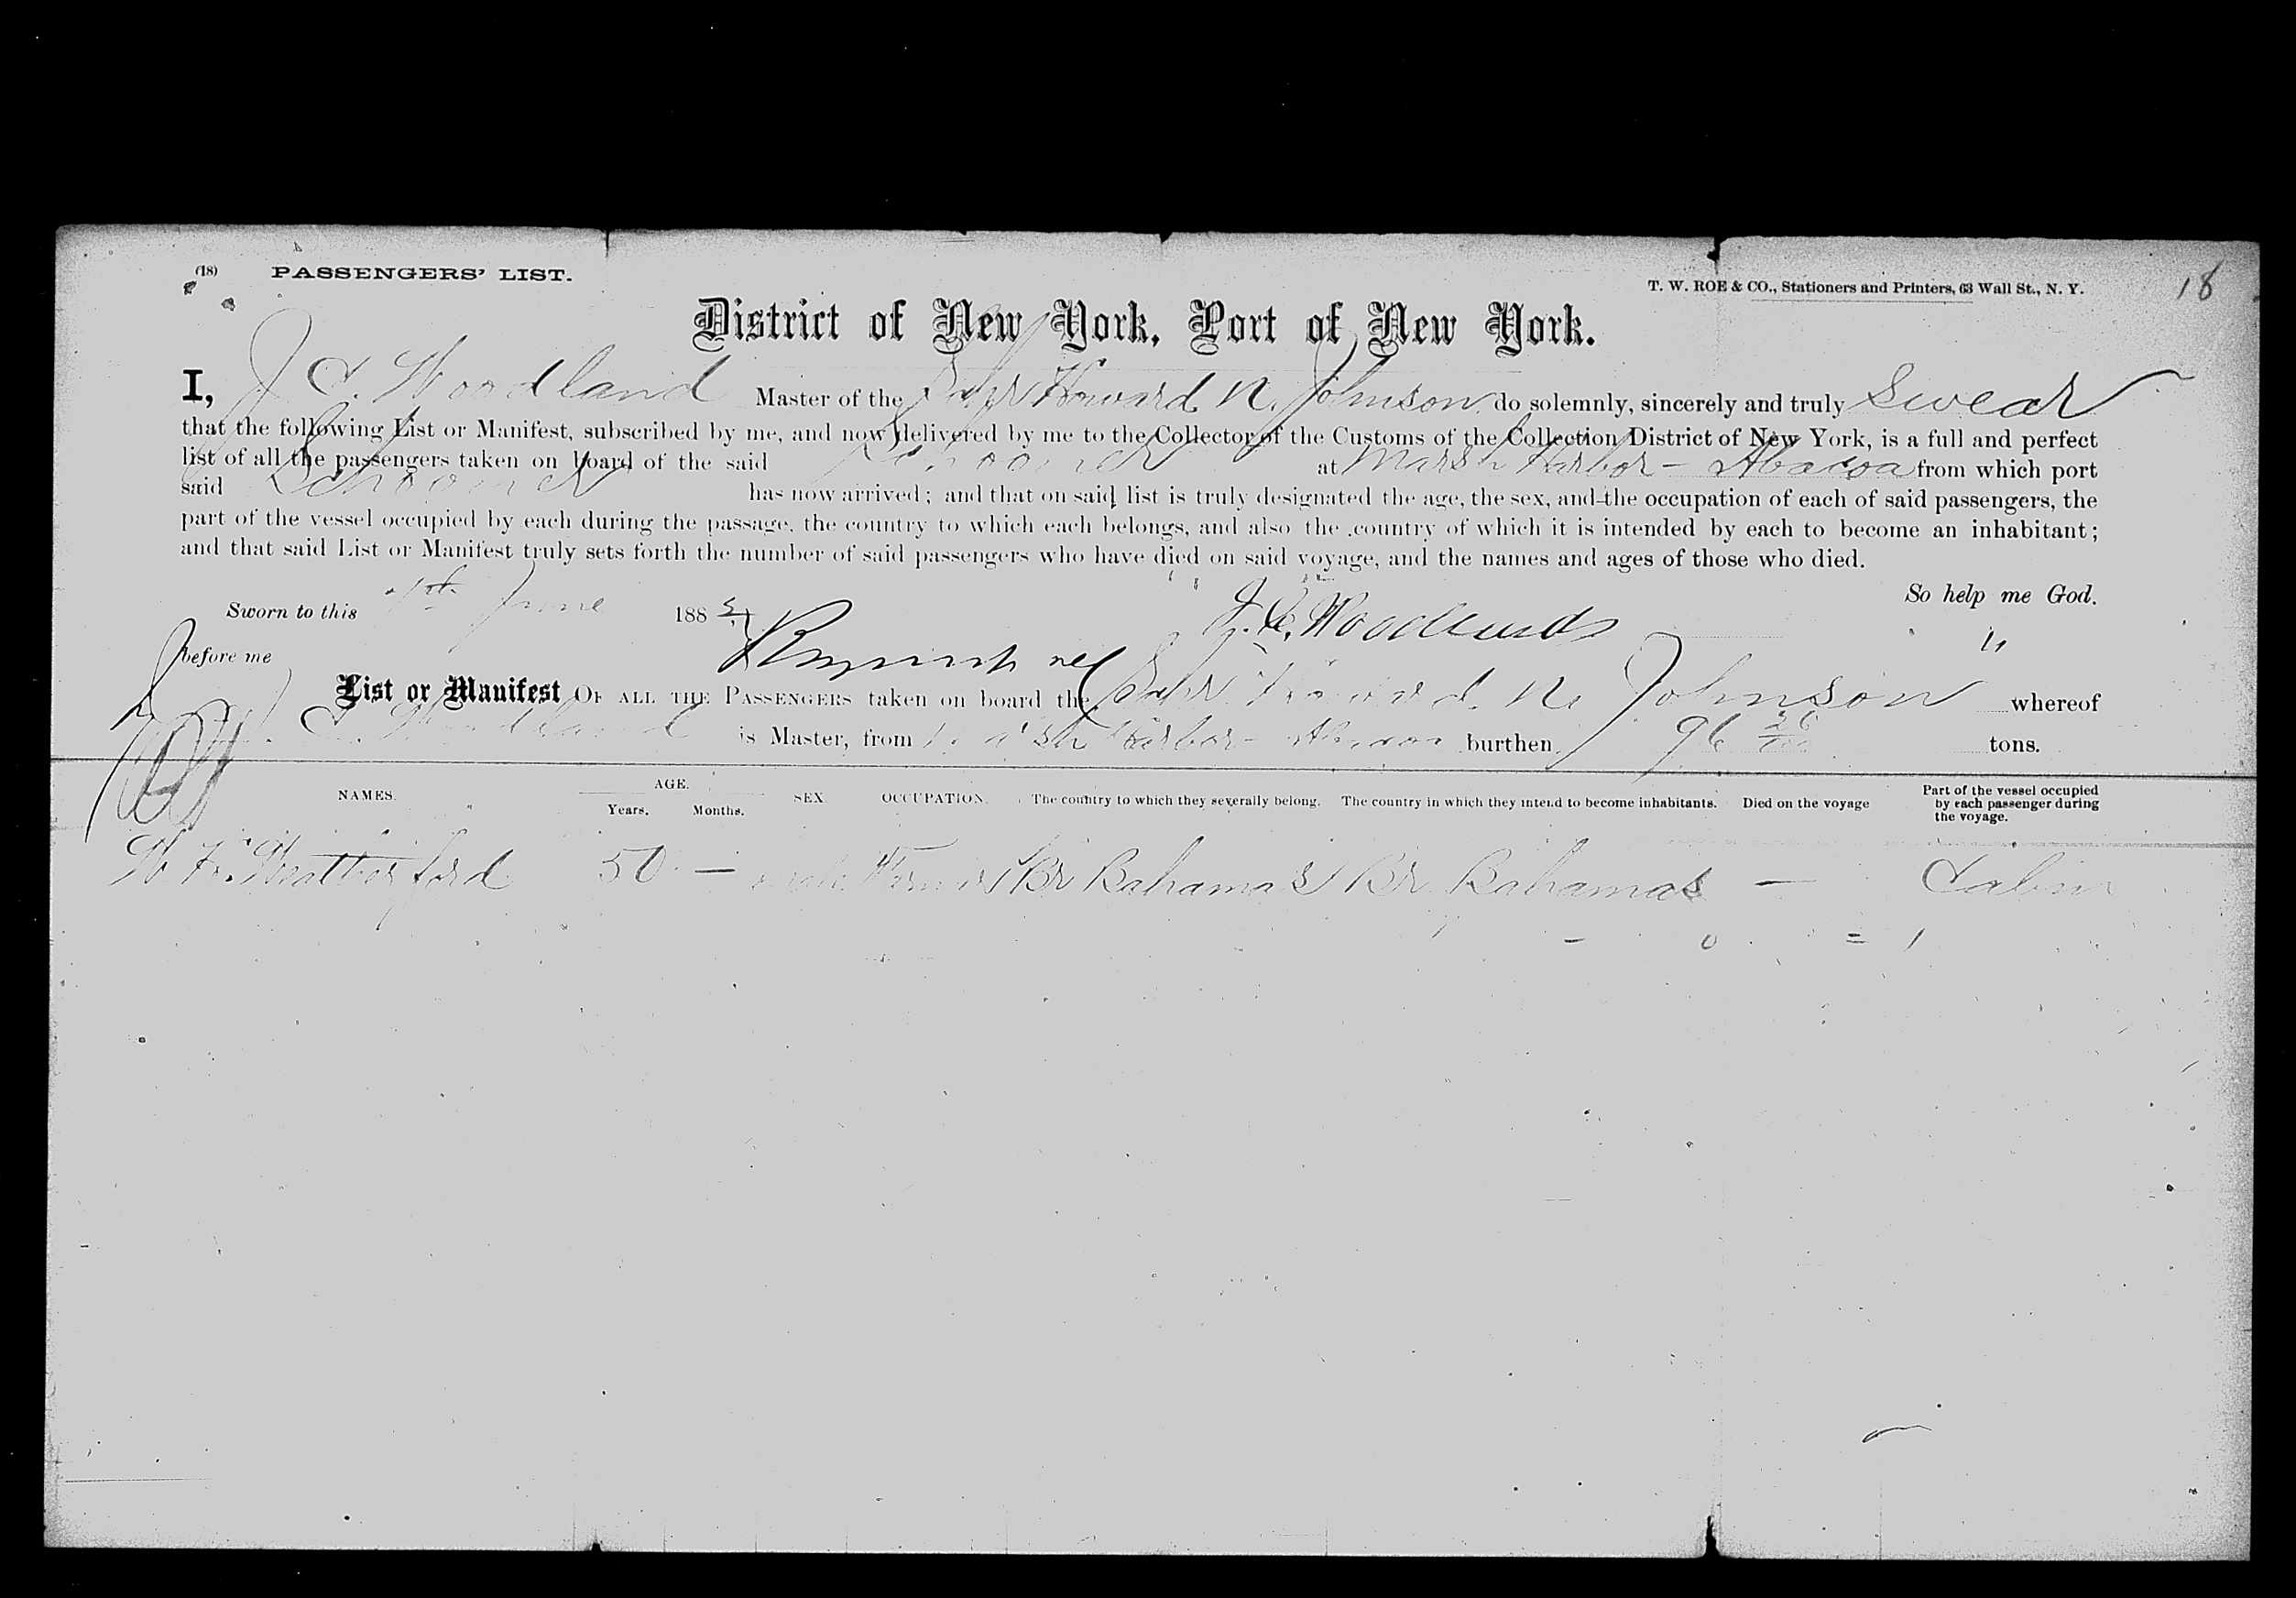 (18) PASSENGERS' LIST.
T. W. ROE & CO., Stationers and Printers, 63 Wall St., N. Y.
18
District of New York, Port of New York.
I, J C. Woodland Master of the Schr Howard N. Johnson do solemnly, sincerely and truly Swear
that the following List or Manifest, subscribed by me, and now delivered by me to the Collector of the Customs of the Collection District of New York, is a full and perfect
list of all the passengers taken on board of the said Schooner at Marsh Harbor - Abacoa from which port
said Schooner has now arrived; and that on said list is truly designated the age, the sex, and the occupation of each of said passengers, the
part of the vessel occupied by each during the passage, the country to which each belongs, and also the country of which it is intended by each to become an inhabitant;
and that said List or Manifest truly sets forth the number of said passengers who have died on said voyage, and the names and ages of those who died.
So help me God.
Sworn to this June 188 J. C. Woodland
before me
List or Manifest OF ALL THE PASSENGERS taken on board the Schr Howard N. Johnson whereof
J. C. Woodland is Master, from Marsh Harbor - Abacoa burthen 96 tons.
NAMES. AGE. SEX. OCCUPATION. The country to which they severally belong. The country in which they intend to become inhabitants. Died on the voyage Part of the vessel occupied by each passenger during the voyage.
Years. Months.
W. F. Weatherford 50 — male Farmer Br Bahamas Br Bahamas — Cabin
- 0 = 1